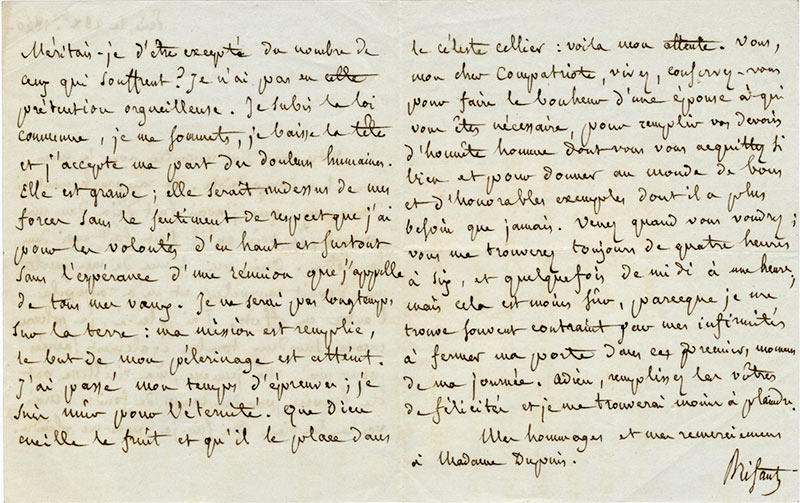 Méritais-je d'être excepté du nombre de
ceux qui souffrent? Je n'ai pas eu cette
prétention orgueilleuse. Je subis la loi
commune, je me soumets, je baisse la tête
et j'accepte ma part des douleurs humaines.
Elle est grande; elle serait au dessus de mes
forces sans le sentiment de respect que j'ai
pour les volontés d'en haut et surtout
sans l'espérance d'une réunion que j'appelle
de tous mes vœux. Je ne serai pas longtemps
sur la terre: ma mission est remplie,
le but de mon pélerinage est atteint.
J'ai passé mon temps d'épreuves; je
suis mûr pour l'éternité. Que Dieu
cueille le fruit et qu'il le place dans
le céleste cellier: voila mon attente. Vous,
mon cher Compatriote, vivez, conservez-vous
pour faire le bonheur d'une épouse à qui
vous êtes nécessaire, pour remplir vos devoirs
d'honnête homme dont vous vous acquittez si
bien et pour donner au monde de bons
et d'honorables exemples dont il a plus
besoin que jamais. Venez quand vous voudrez;
vous me trouverez toujours de quatre heures
à six, et quelquefois de midi à une heure;
mais cela est moins sûr, parceque je me
trouve souvent contraint par mes infirmités
à fermer ma porte dans ces premiers momens
de ma journée. Adieu, remplissez les vôtres
de félicités et je me trouverai moins à plaindre.
Mes hommages et mes remerciemens
à Madame Dupuis.
Brifaut